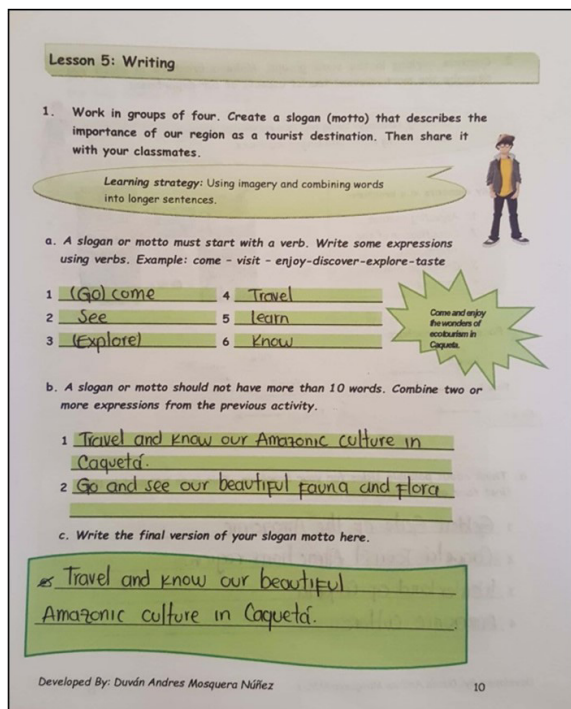 Lesson 5: Writing
1. Work in groups of four. Create a slogan (motto) that describes the
importance of our region as a tourist destination. Then share it
with your classmates.
Learning strategy: Using imagery and combining words
into longer sentences.
a. A slogan or motto must start with a verb. Write some expressions
using verbs. Example: come - visit - enjoy-discover-explore-taste
1 (Go) come 4 Travel
2 See 5 learn
3 (Explore) 6 Know
Come and enjoy
the wonders of
ecotourism in
Caquetá.
b. A slogan or motto should not have more than 10 words. Combine two or
more expressions from the previous activity.
1 Travel and know our Amazonic culture in
Caquetá.
2 Go and see our beautiful fauna and flora
c. Write the final version of your slogan motto here.
Travel and know our beautiful
Amazonic culture in Caquetá.
Developed By: Duván Andres Mosquera Núñez 10